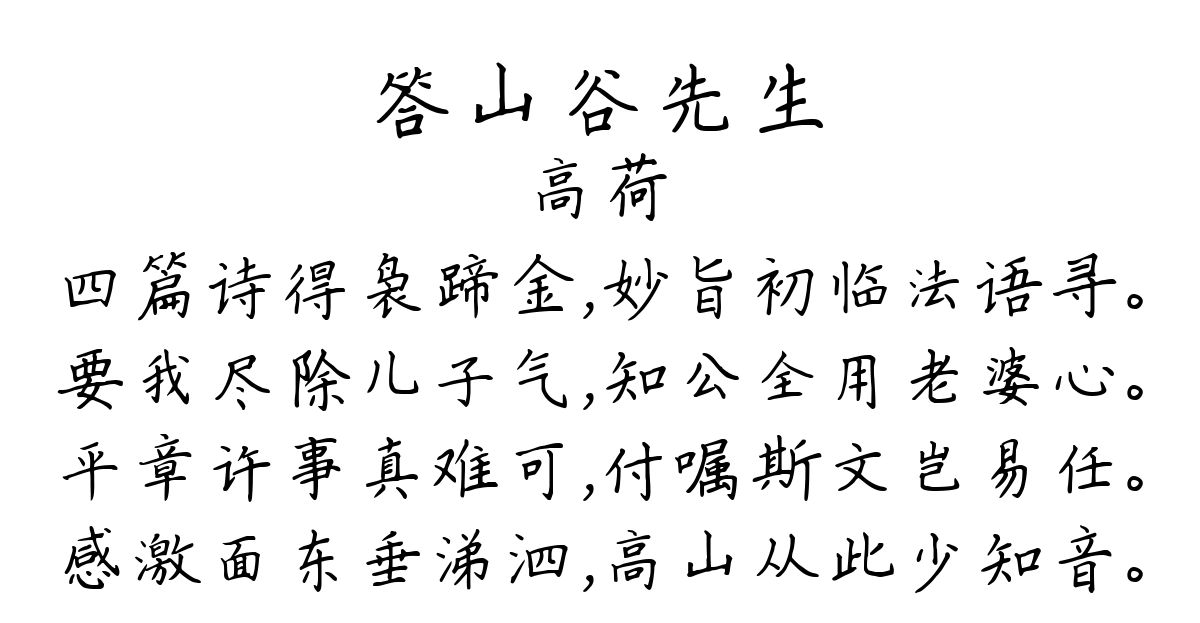 答山谷先生
高荷
四篇诗得袅蹄金,妙旨初临法语寻。
要我尽除儿子气,知公全用老婆心。
平章许事真难可,付嘱斯文岂易任。
感激面东垂涕泗,高山从此少知音。